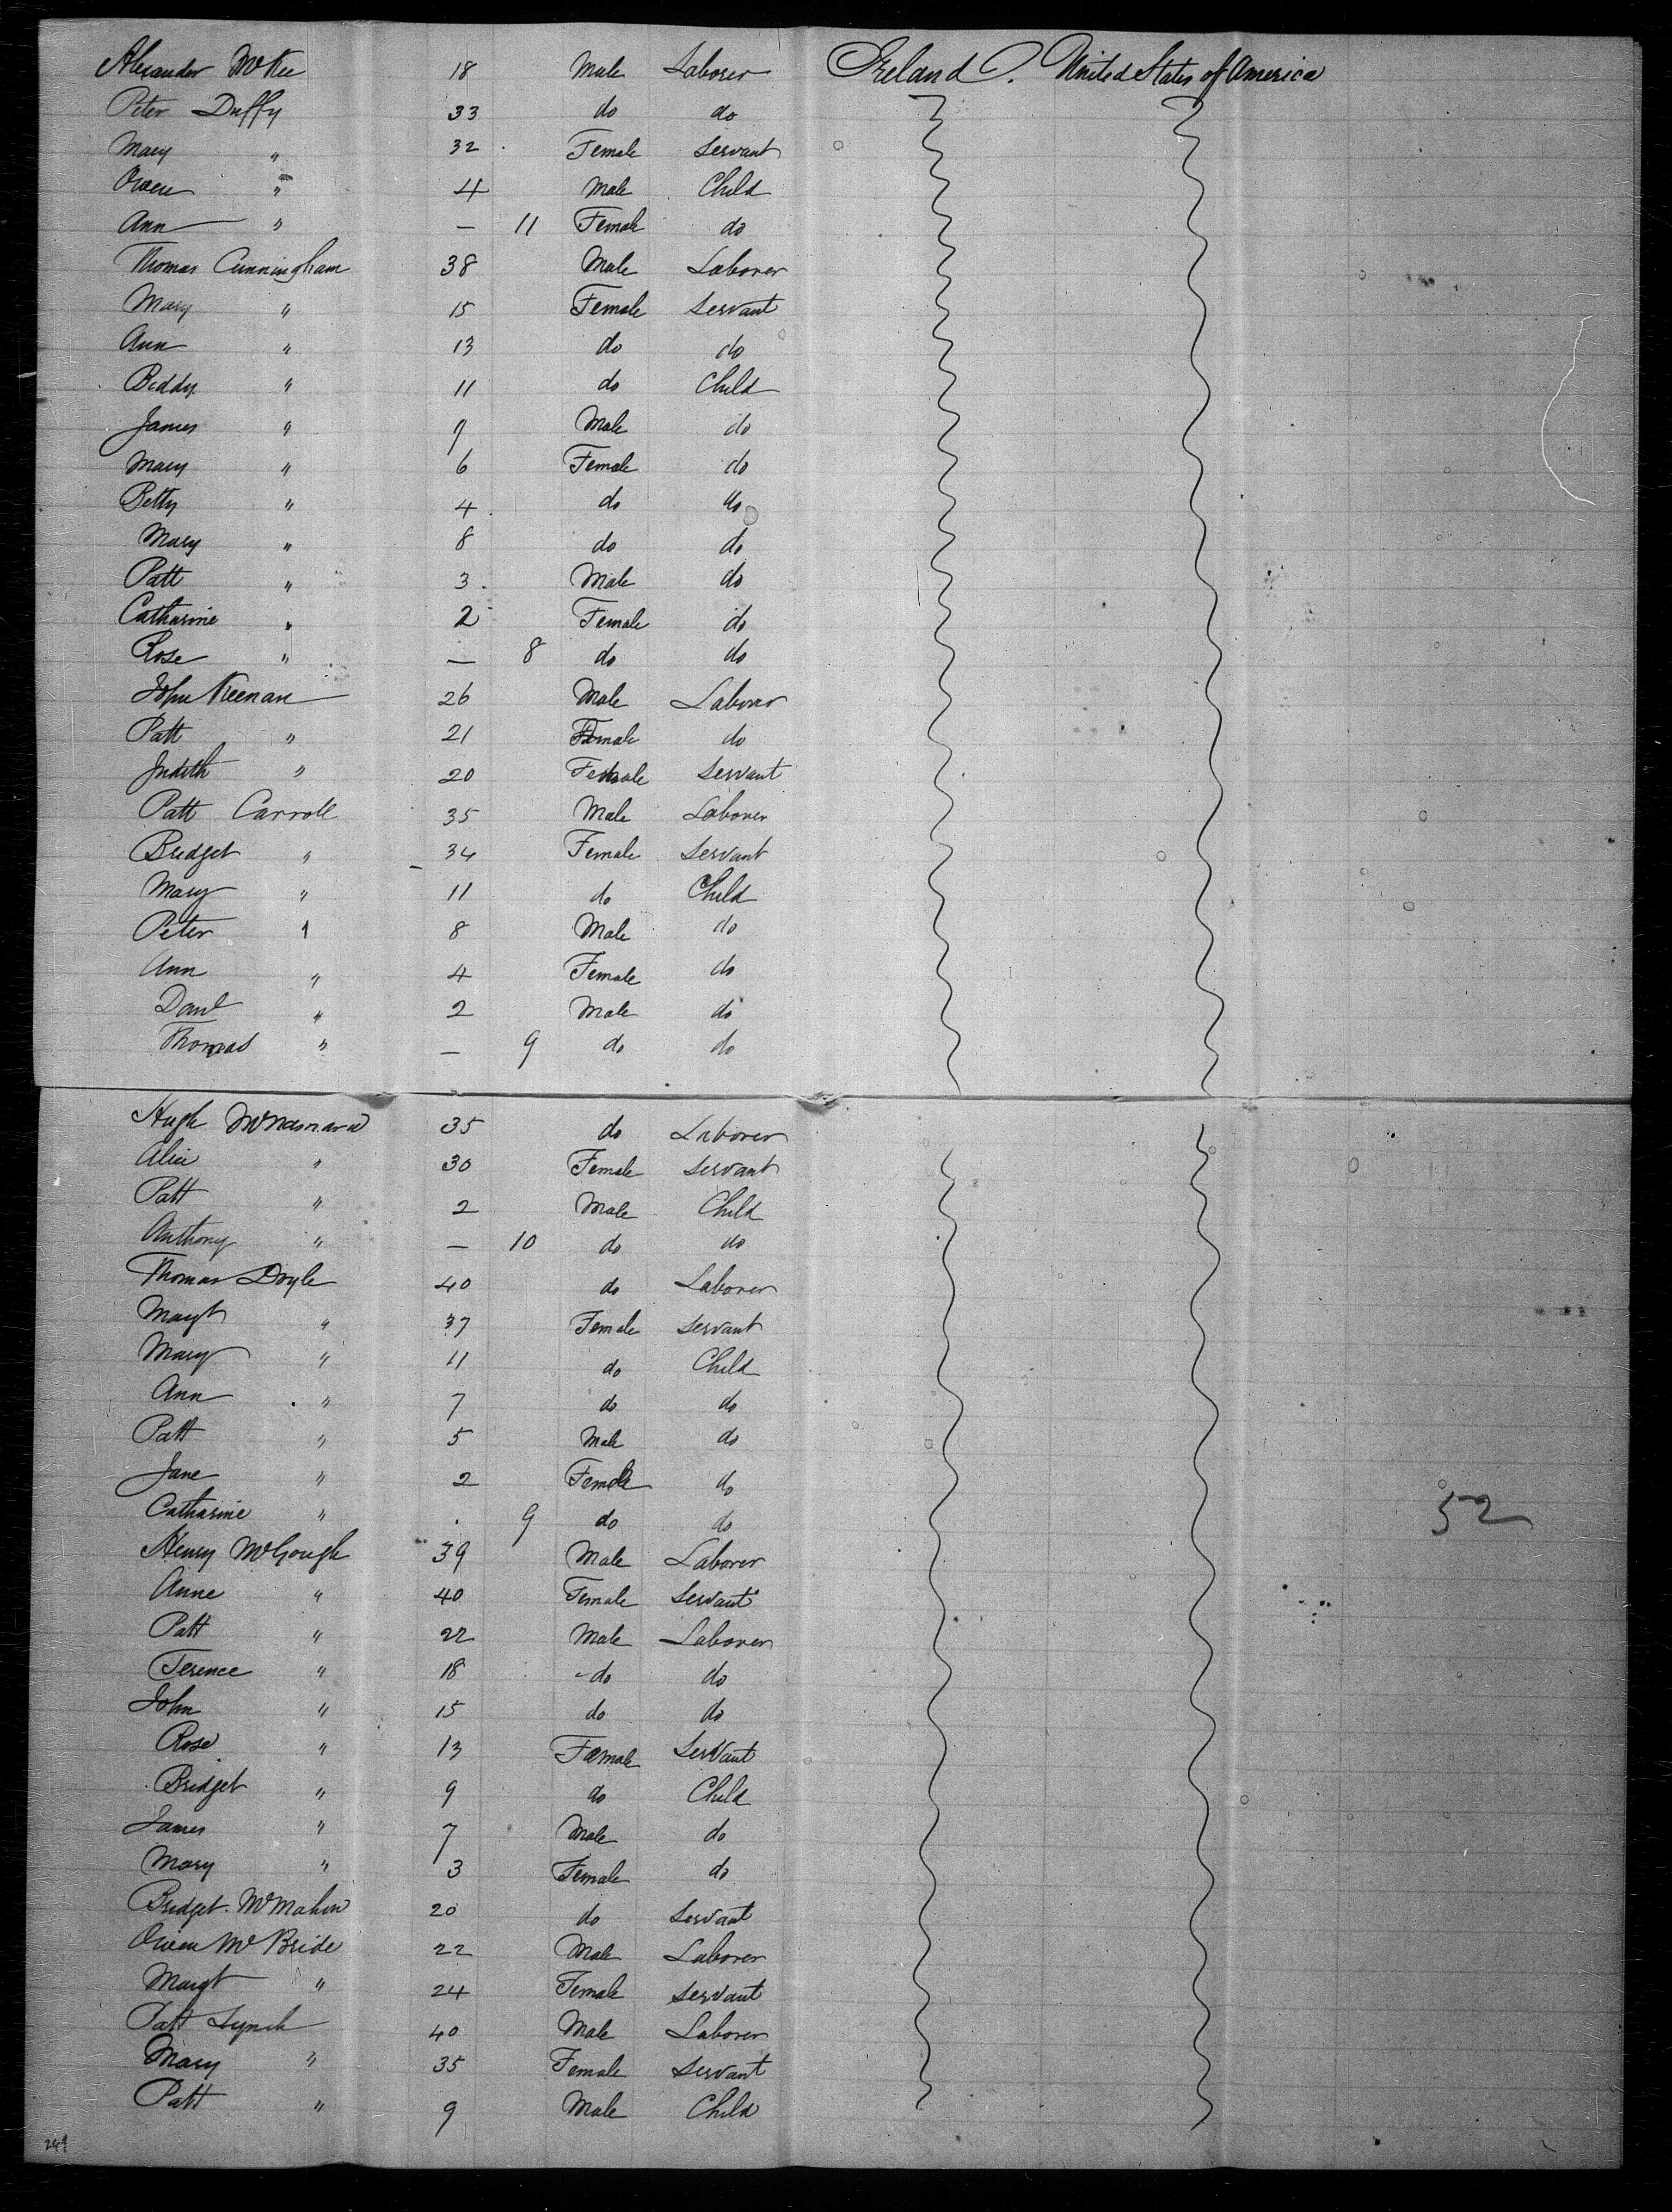 Alexander McKee 18 Male Laborer Ireland. United States of America
Peter Duffy 33 do do
Mary " 32 Female Servant
Owen " 4 Male Child
Ann " — 11 Female do
Thomas Cunningham 38 Male Laborer
Mary " 15 Female Servant
Ann " 13 do do
Biddy " 11 do Child
James " 9 Male do
Mary " 6 Female do
Betty " 4 do do
Mary " 8 do do
Patt " 3 Male do
Catharine " 2 Female do
Rose " — 8 do do
John Keenan 26 Male Laborer
Patt " 21 male do
Judith " 20 Female Servant
Patt Carroll 35 Male Laborer
Bridget " 34 Female Servant
Mary " 11 do Child
Peter " 8 Male do
Ann " 4 Female do
Danl " 2 Male do
Thomas " — 9 do do
Hugh McNamara 35 do Laborer
Alice " 30 Female Servant
Patt " 2 Male Child
Anthony " — 10 do do
Thomas Doyle 40 do Laborer
Margt " 37 Female Servant
Mary " 11 do Child
Ann " 7 do do
Patt " 5 Male do
Jane " 2 Female do
Catharine " . 9 do do
52
Henry McGough 39 Male Laborer
Anne " 40 Female Servant
Patt " 22 Male Laborer
Terence " 18 do do
John " 15 do do
Rose " 13 Female Servant
Bridget " 9 do Child
James " 7 Male do
Mary " 3 Female do
Bridget McMahon 20 do Servant
Owen McBride 22 Male Laborer
Margt " 24 Female Servant
Patt Lynch 40 Male Laborer
Mary " 35 Female Servant
Patt " 9 Male Child
249